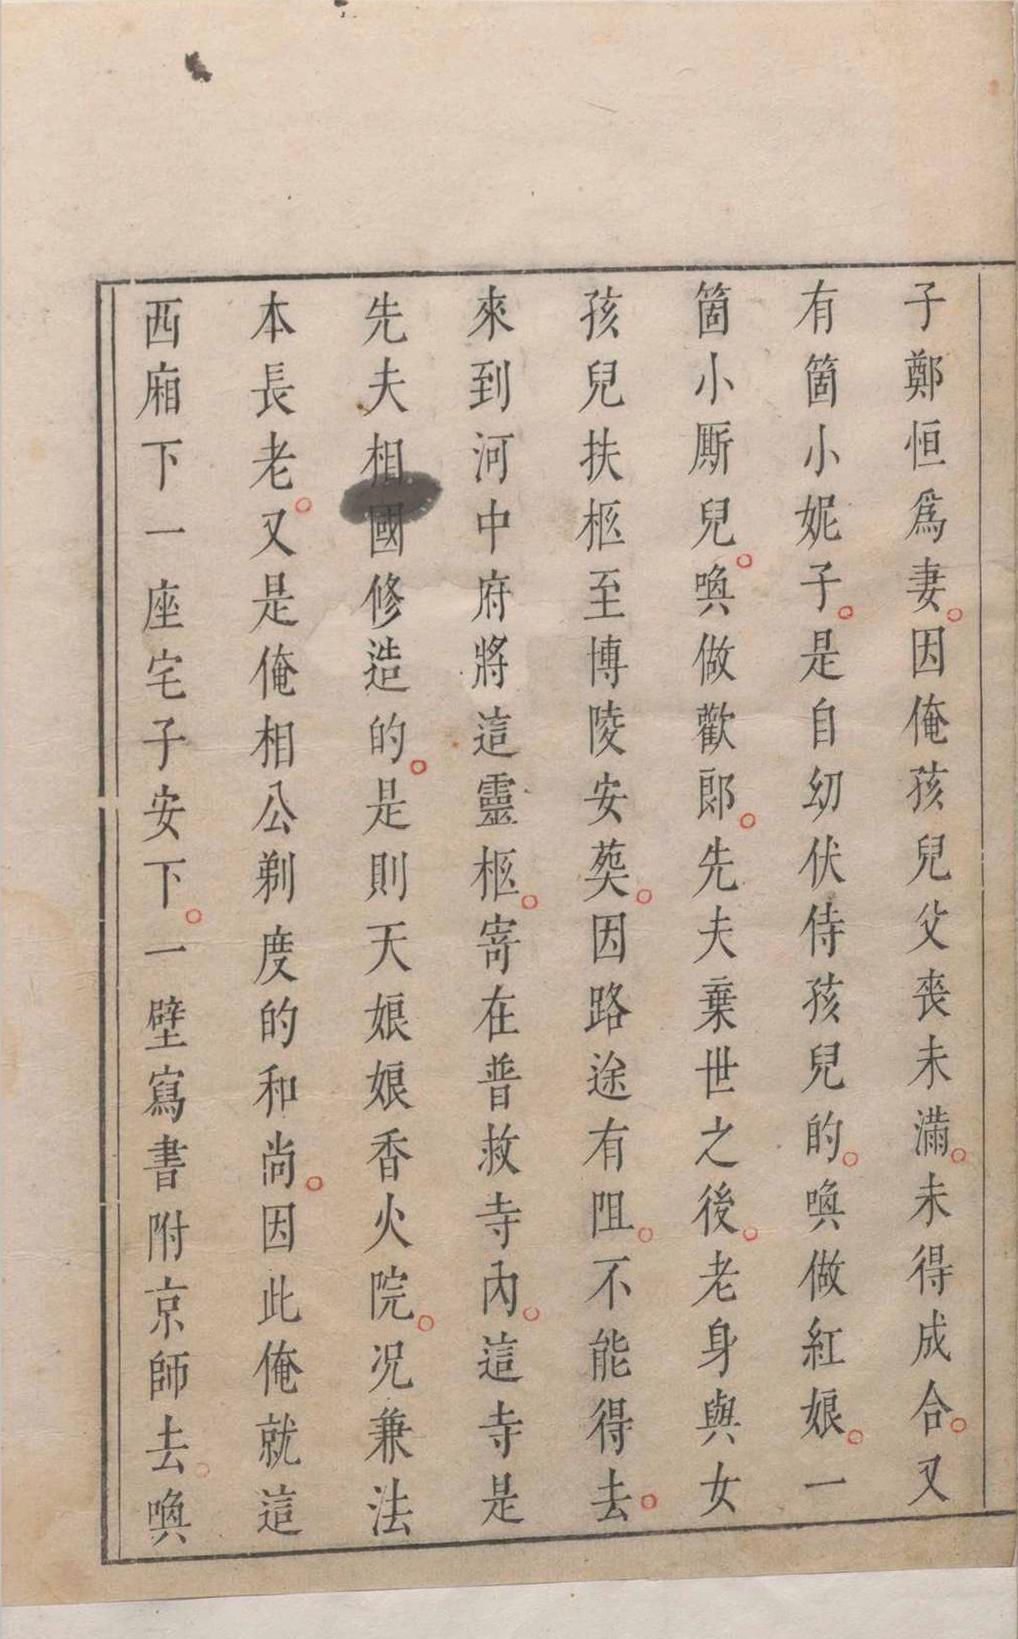 子鄭恒爲妻。因俺孩兒父喪未滿。未得成合。又
有箇小妮子。是自幼伏侍孩兒的。喚做紅娘。一
箇小厮兒。喚做歡郎。先夫棄世之後。老身與女
孩兒扶柩至博陵安葬。因路途有阻。不能得去。
來到河中府將這靈柩。寄在普救寺內。這寺是
先夫相國修造的。是則天娘娘香火院。况兼法
本長老。又是俺相公剃度的和尚。因此俺就這
西廂下一座宅子安下。一壁寫書附京師去。喚